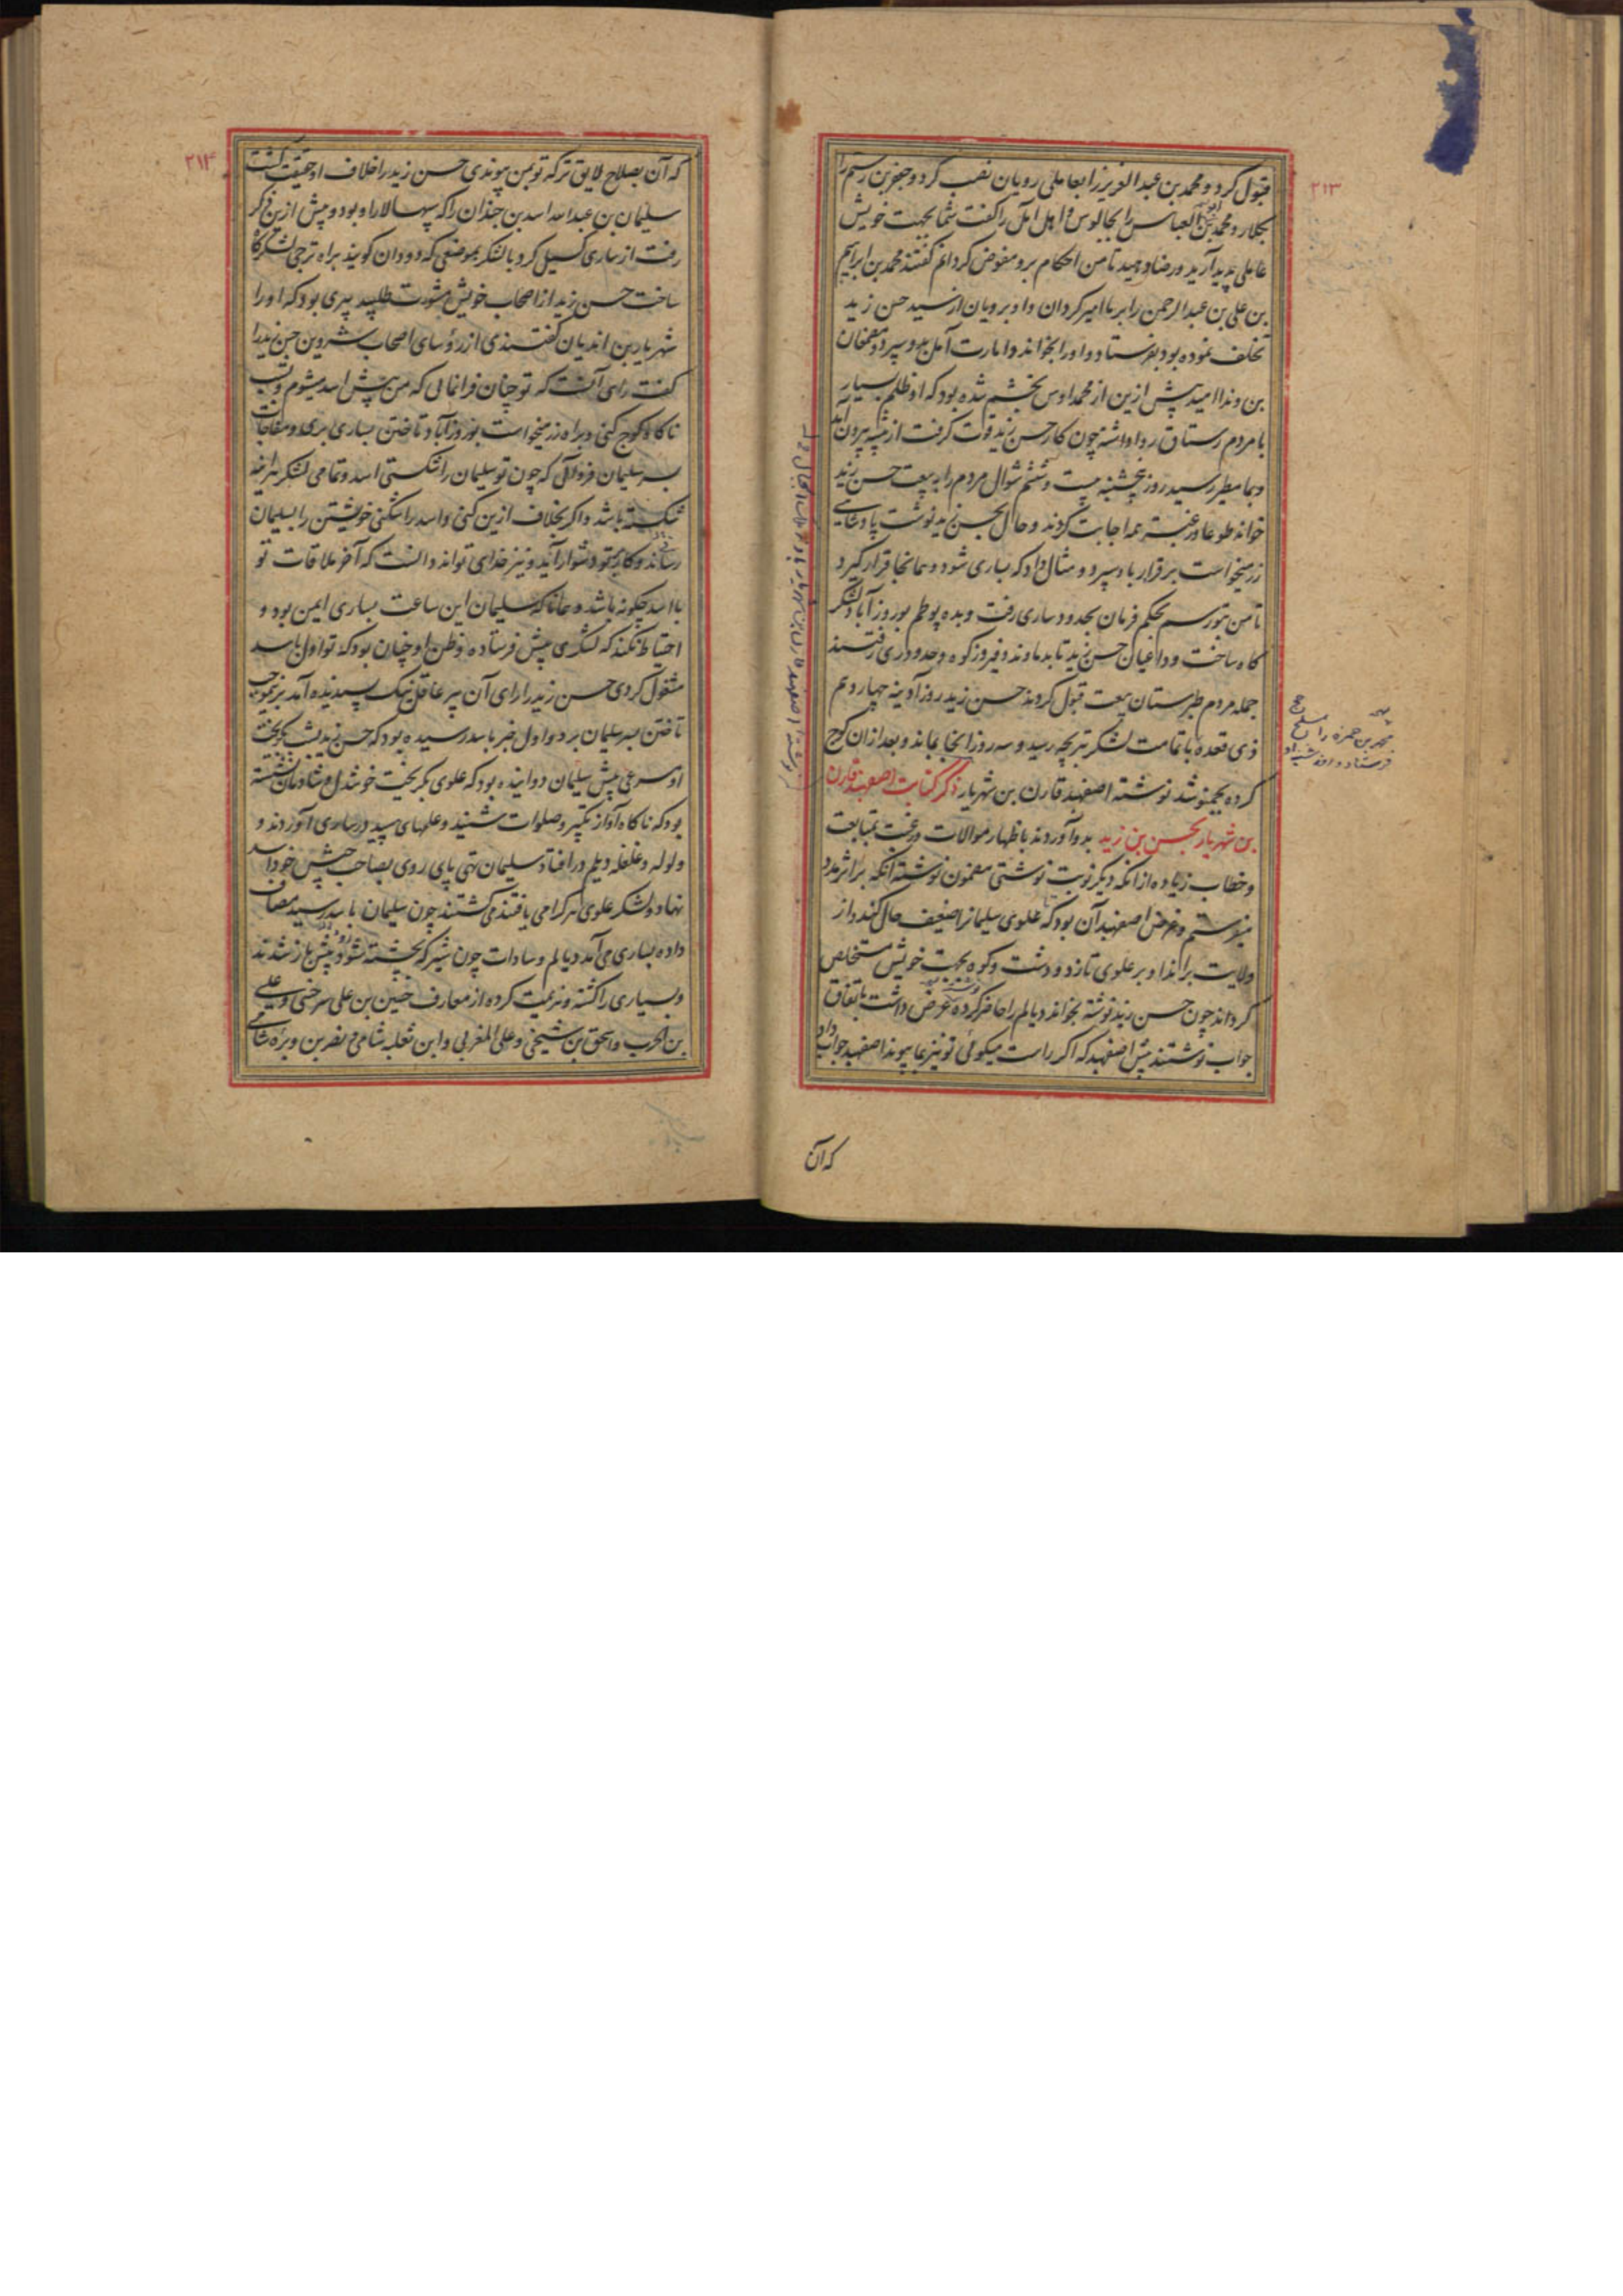 ۲۱۳
قبول کرد و محمد بن عبدالعزیز را بعاملی رویان نصب کرد و جعفر بن رستم را
بکلار و محمد بن العباس را بچالوس و اهل آمل را گفت شما بجهت خویش
عاملی پدید آرید و رضا دهید تا من احکام برو مفوض کردانم گفتند محمد بن ابراهیم
بن علی بن عبدالرحمن را بر ما امیر گردان و او برویان از سید حسن زید
تخلف نموده بود بفرستاد و او را بخواند و امارت آمل بدو سپرد و مصمغان
بن ونداامید پیش ازین از محمد اوس بخشم شده بود که او ظلم بسیار
با مردم رستاق روا داشته چون کار حسن زید قوت گرفت از بیشه بیرون آمد
و بمامطیر رسید روز پنجشنبه بیست و ششم شوال مردم را به بیعت حسن زید
خواند طوعا و رغبة همه اجابت کردند و حال بحسن زید نوشت پادشاهی
زرمیخواست برقرار باو سپرد و مثال داد که بساری شود و همانجا قرار گیرد
تا من بتو رسم بحکم فرمان بحدود ساری رفت و بده پوطم بوروزآباد لشکر
گاه ساخت و داعیان حسن زید تا بدماوند و فیروزکوه و حدود ری رفتند
جمله مردم طبرستان بیعت قبول کردند حسن زید روز آدینه چهاردهم
ذی قعده با تمامت لشکر بتریجه رسید و سه روز آنجا بماند و بعد ازان کوچ
کرده بچمنو شد نوشته اصفهبد قارن بن شهریار ذکر کتابت اصفهبد قارن
بن شهریار بحسن بن زید بدو آوردند باظهار موالات و رغبت بمتابعت
و خطاب زیاده از آنکه دیگر نوبت نوشتی مضمون نوشته آنکه بر اثر مدد
میفرستم و غرض اصفهبد آن بود که علوی سلیمان را ضعیف حال کند و از
ولایت براند او بر علوی تازد و دشت و کوه بجهت خویش مستخلص
گرداند چون حسن زید نوشته بخواند دیالم را حاضر کرده عرض داشت باتفاق
جواب نوشتند پیش اصفهبد که اگر راست میگوئی تو نیز بما پیوند اصفهبد جواب داد
محمد بن حمزه را
فرستاد و
که آن
۲۱۴
که آن بصلاح لایق تر که تو بمن پیوندی حسن زید را خلاف او حقیقت گشت
سلیمان بن عبدالله اسد بن جندان را که سپهسالار او بود و پیش ازین ذکر
رفت از ساری گسیل کرد با لشکر بموضعی که دودان گویند براه ترجی لشکرگاه
ساخت حسن زید از اصحاب خویش مشورت طلبید پیری بود که او را
شهریار بن اندیان گفتندی از رؤسای اصحاب شروین حسن زید را
گفت رای آنست که تو چنان فرانمائی که من پیش اسد میشوم و بشب
ناگاه کوچ کنی و براه زرمیخواست بوروزآباد تاختن بساری بری و مفاجات
بسر سلیمان فروآئی که چون تو سلیمان را شکستی اسد و تمامی لشکر را نیز
شکسته باشد و اگر بخلاف ازین کنی و اسد را شکنی خویشتن را بسلیمان
رساند و کار بتو دشوار آید و نیز خدای تواند دانست که آخر ملاقات تو
با اسد چگونه باشد و همانا که سلیمان این ساعت بساری ایمن بود و
احتیاط نکند که لشکری پیش فرستاده و ظن او چنان بود که تو اول باسد
مشغول گردی حسن زید را رای آن پیر عاقل نیک پسندیده آمد برینموجب
تاختن بسر سلیمان برد و اول خبر باسد رسیده بود که حسن زید بشب بگریخت
او مسرعی پیش سلیمان دوانیده بود که علوی بگریخت خوشدل و شادمان نشسته
بود که ناگاه آواز تکبیر و صلوات شنید و علمهای سپید در ساری آوردند و
ولوله و غلغله دیلم در افتاد سلیمان تهی پای روی بصاحب جیش خود اسد
نهاد و لشکر علوی هر کرا می یافتند می کشتند چون سلیمان باسد رسید مصاف
داده بساری می آمد دیالم و سادات چون شیر که بخسته شود پیش باز شدند
و بسیاری را کشته و هزیمت کرده از معارف حسین بن علی سرخسی و علی
بن الحرب و اسحق بن شیخی و علی المغربی و ابن ثعلبه شامی و نصر بن وبره شامی